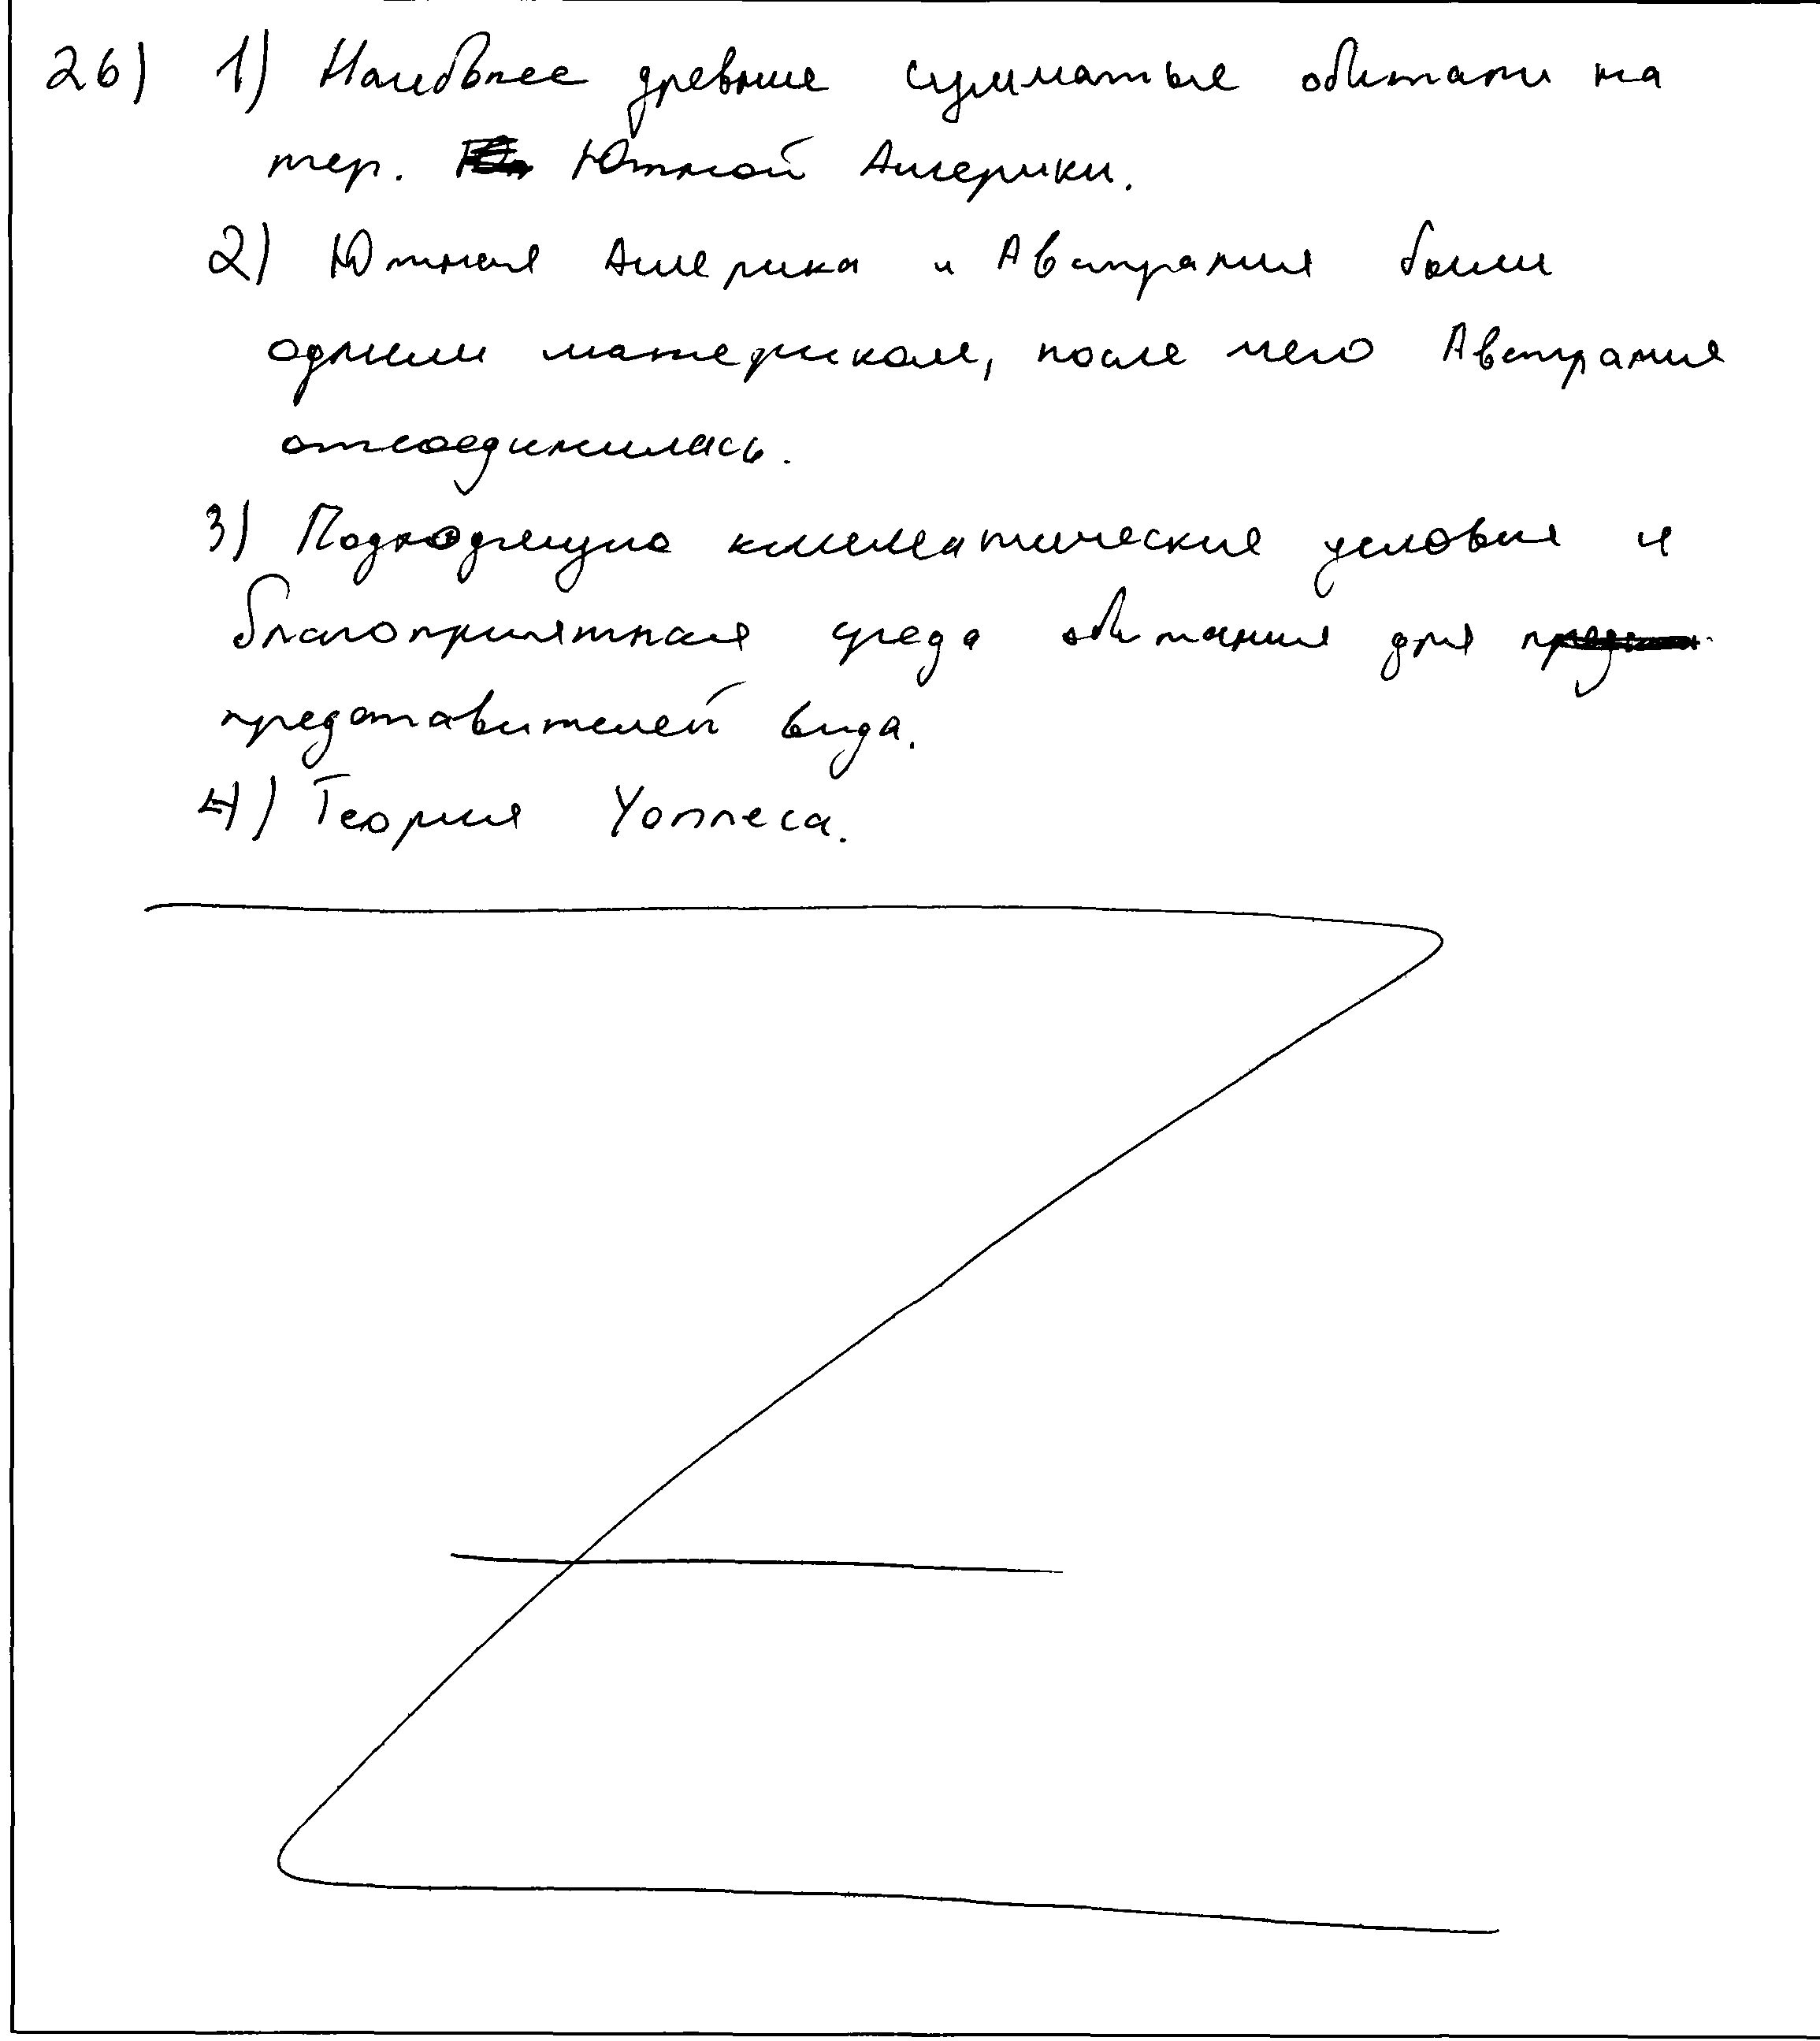 26) 1) Наиболее древние сумчатые обитали на
тер. Южной Америки.
2) Южная Америка и Австралия были
одним материком, после чего Австралия
отсоединилась.
3) Подходящие климатические условия и
благоприятная среда обитания для
представителей вида.
4) Теория Уоллеса.